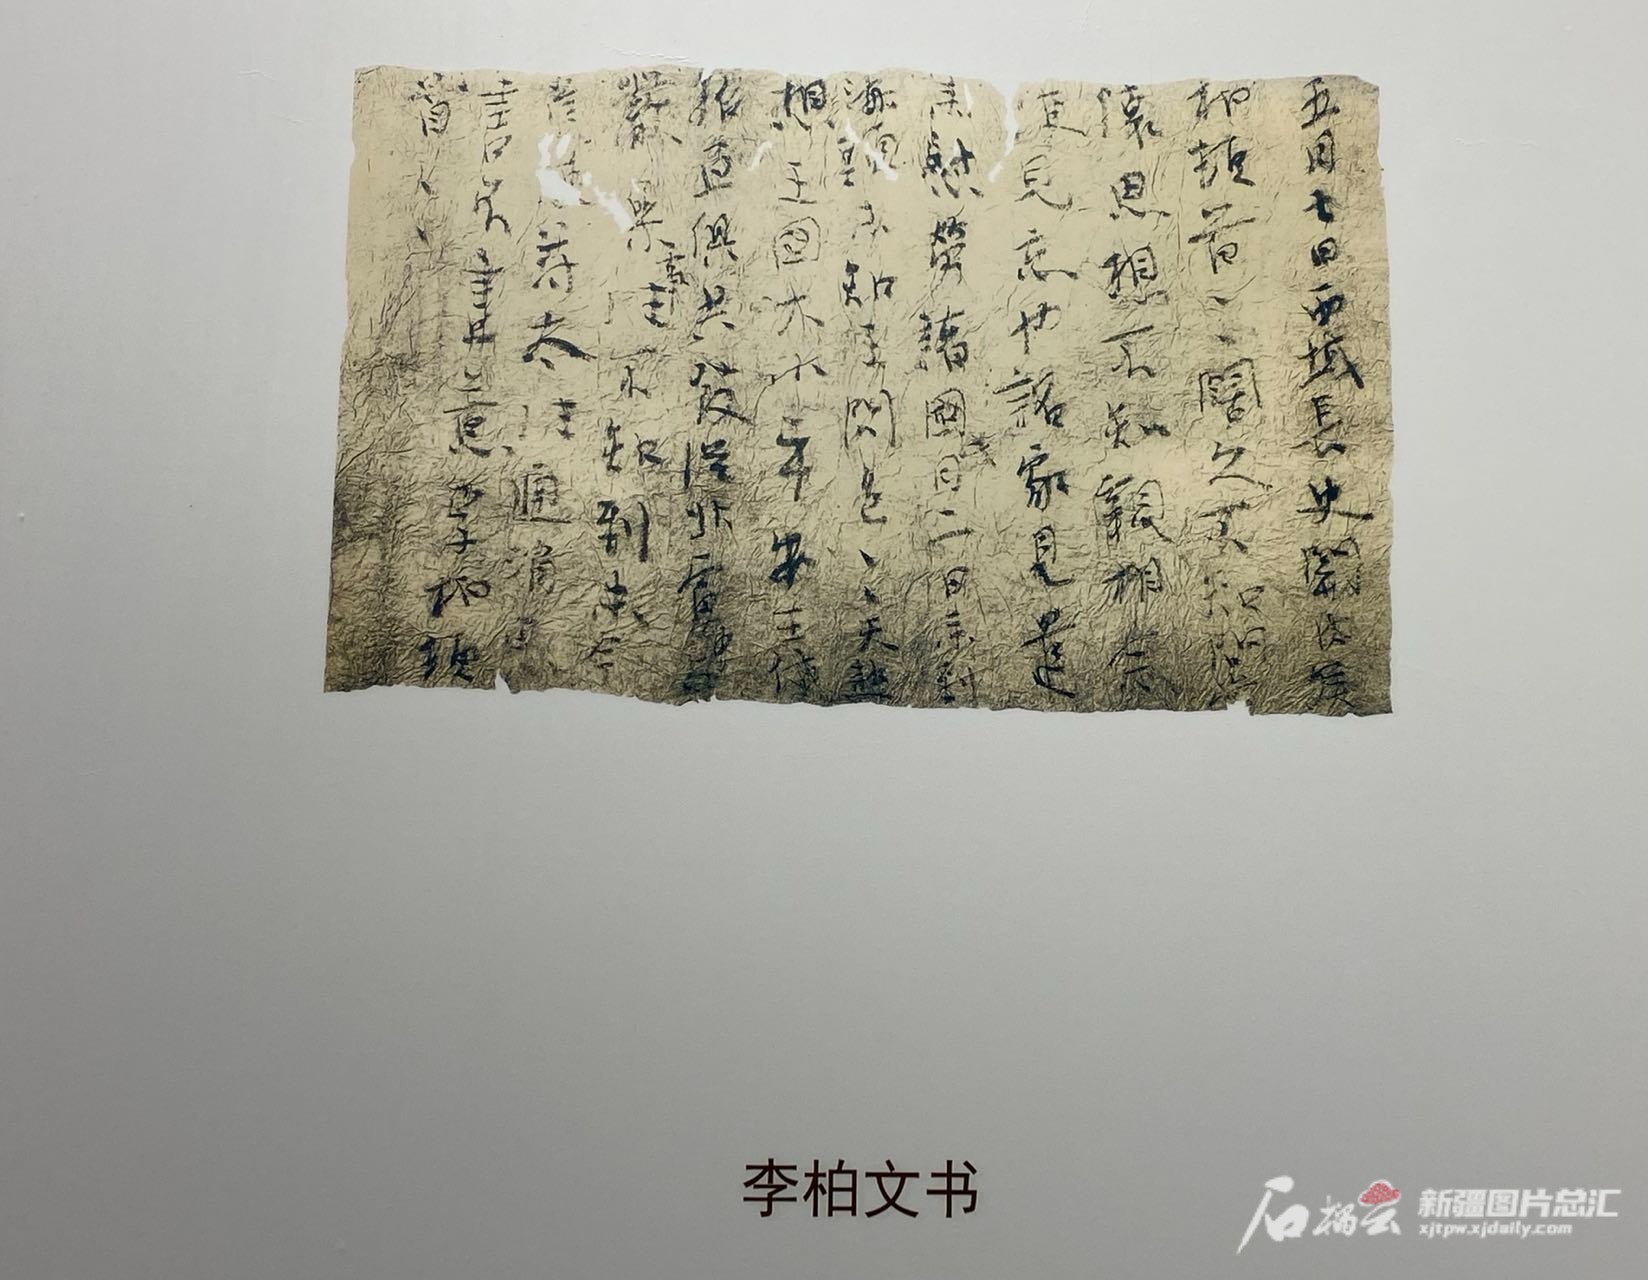 五月七日西域長史關內侯
柏頓首ヽヽ闊久不知問
懷思想不知親相念
便見忘也詔家見遣
來慰勞諸國月二日來到
海頭未知王問邑ヽ天熱
想王國大小平安王使
招亘俱共發從北虜中與
嚴參事往不知到未今
遣使苻太往通消息
書不盡意李柏頓
首ヽヽ
李柏文书
石榴云
新疆图片总汇
xjtpw.xjdaily.com